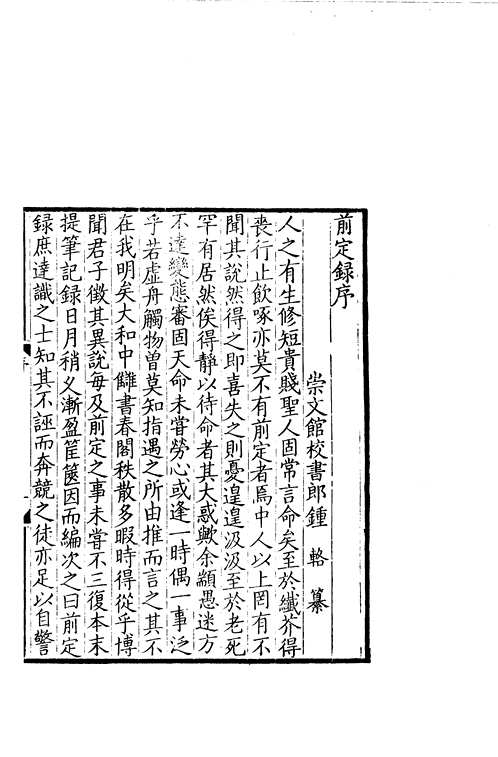 前定録序
崇文館校書郎鍾 輅 纂
人之有生修短貴賤聖人固常言命矣至於纖芥得
喪行止飲啄亦莫不有前定者焉中人以上罔有不
聞其說然得之即喜失之則憂遑遑汲汲至於老死
罕有居然俟得靜以待命者其大惑歟余顓愚迷方
不達變態審固天命未嘗勞心或逢一時偶一事泛
乎若虛舟觸物曾莫知指遇之所由推而言之其不
在我明矣大和中讎書春閣秩散多暇時得從乎博
聞君子徵其異說每及前定之事未嘗不三復本末
提筆記録日月稍久漸盈筐篋因而編次之曰前定
録庶達識之士知其不誣而奔競之徒亦足以自警